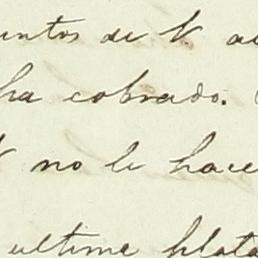 untos de V. a
ha cobrado.
V no le hace
ultima plata